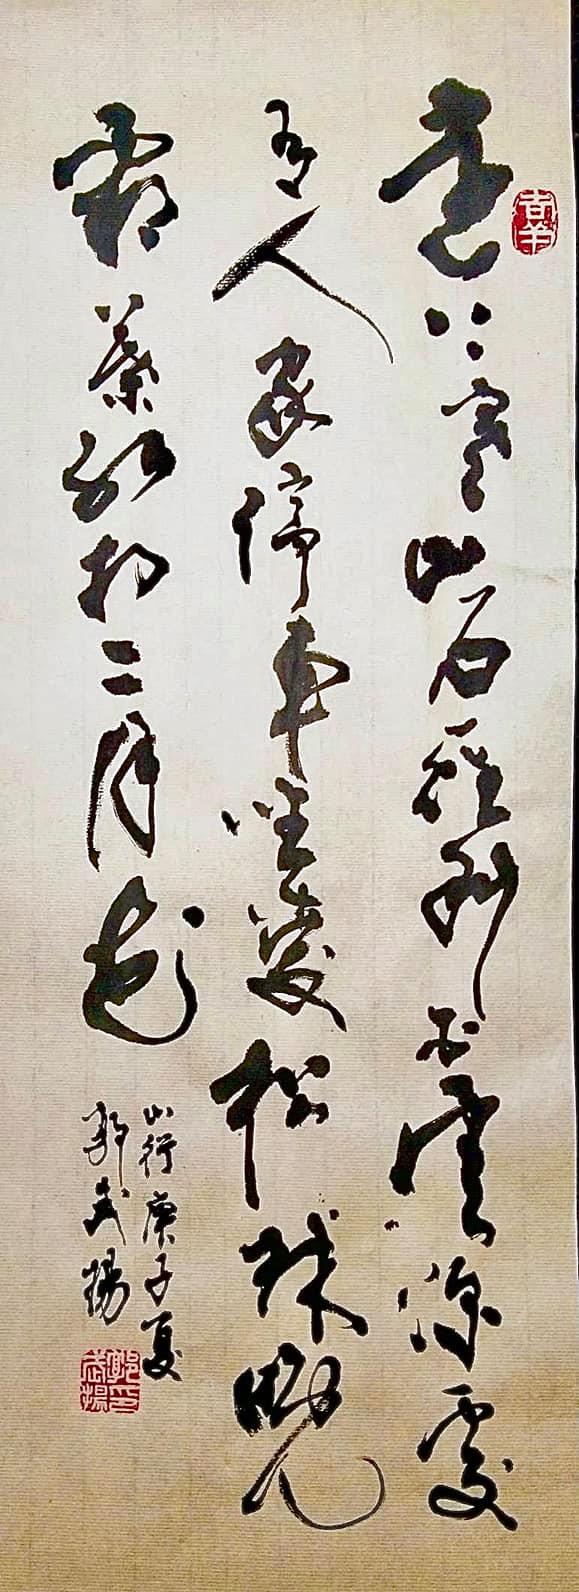 遠上寒山石徑斜白雲深處
有人家停車坐愛楓林晚
霜葉紅於二月花
山行庚子夏
郭武揚
郭印武揚